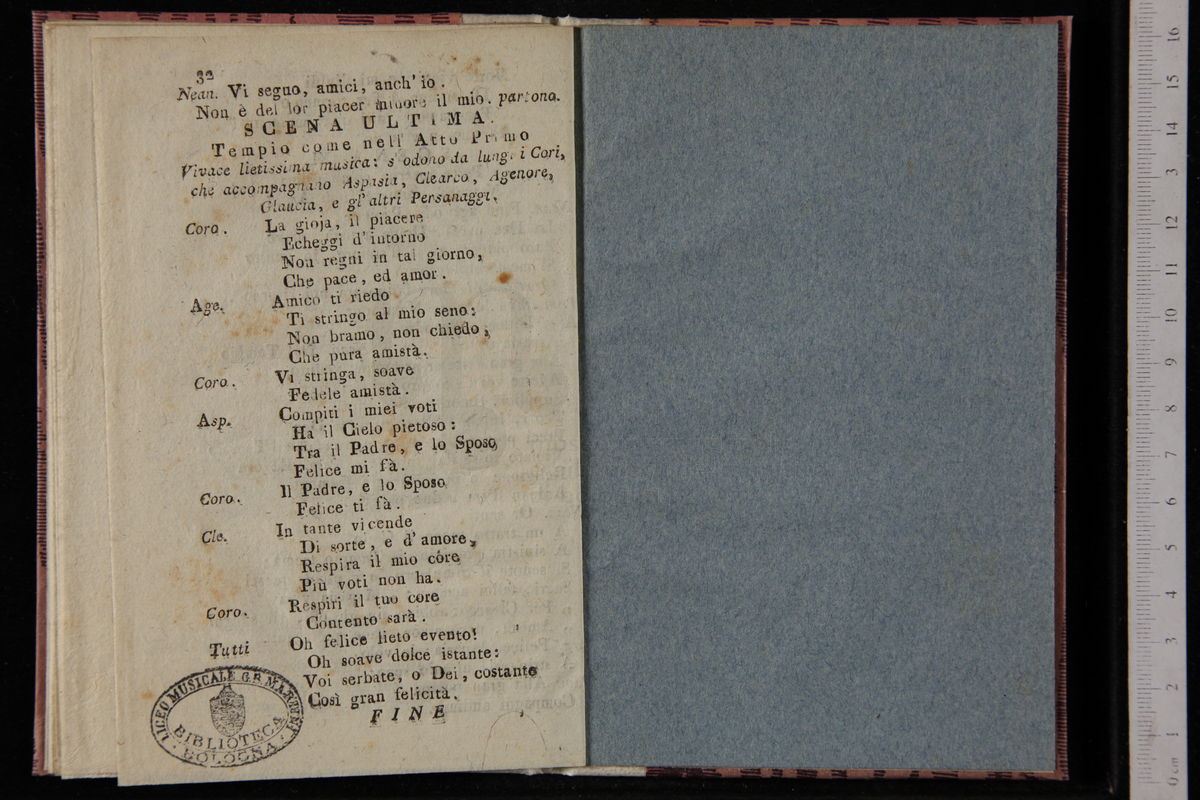 32
Nean. Vi seguo, amici, anch' io.
Non è del lor piacer minore il mio. partono.
SCENA ULTIMA.
Tempio come nell' Atto Primo
Vivace lietissima musica: s' odono da lungi i Cori,
che accompagnano Aspasia, Clearco, Agenore,
Glaucia, e gl' altri Personaggi.
Coro. La gioja, il piacere
Echeggi d' intorno
Non regni in tal giorno,
Che pace, ed amor.
Age. Amico ti riedo
Ti stringo al mio seno:
Non bramo, non chiedo,
Che pura amistà.
Coro. Vi stringa, soave
Fedele amistà.
Asp. Compiti i miei voti
Ha il Cielo pietoso:
Tra il Padre, e lo Sposo
Felice mi fà.
Coro. Il Padre, e lo Sposo
Felice ti fà.
Cle. In tante vicende
Di sorte, e d' amore,
Respira il mio córe
Più voti non ha.
Coro. Respiri il tuo core
Contento sarà.
Tutti Oh felice lieto evento!
Oh soave dolce istante:
Voi serbate, o Dei, costante
Così gran felicità.
FINE
LICEO MUSICALE G. B. MARTINI
BIBLIOTECA
BOLOGNA
0 cm 1 2 3 4 5 6 7 8 9 10 11 12 3 14 15 16